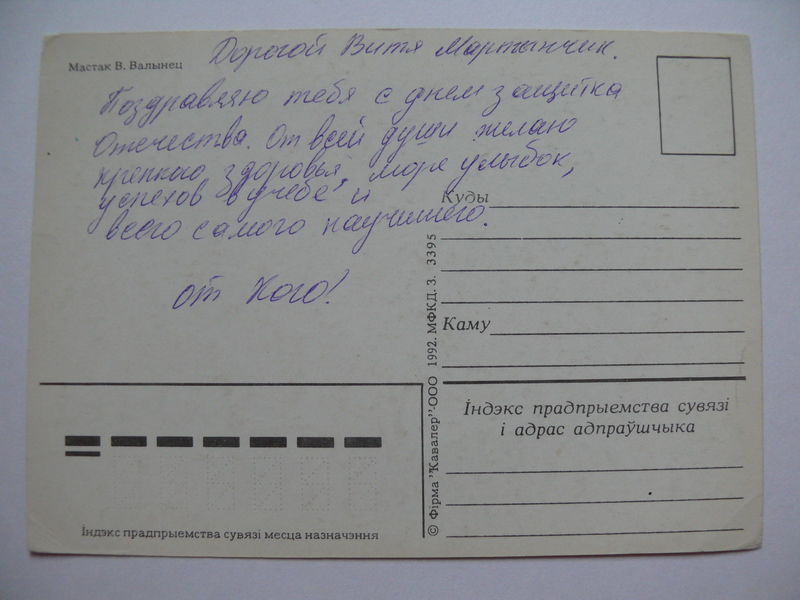 Мастак В. Валынец
Дорогой Витя Мартынчик.
Поздравляю тебя с днем защитка
Отечества. От всей души желаю
крепкого здоровья, моря улыбок,
успехов в учебе и
всего самого научшего.
от Кого!
Куды
Каму
© Фірма "Кавалер"-ООО 1992. МФКД. З. 3395
Індэкс прадпрыемства сувязі
і адрас адпраўшчыка
Індэкс прадпрыемства сувязі месца назначэння